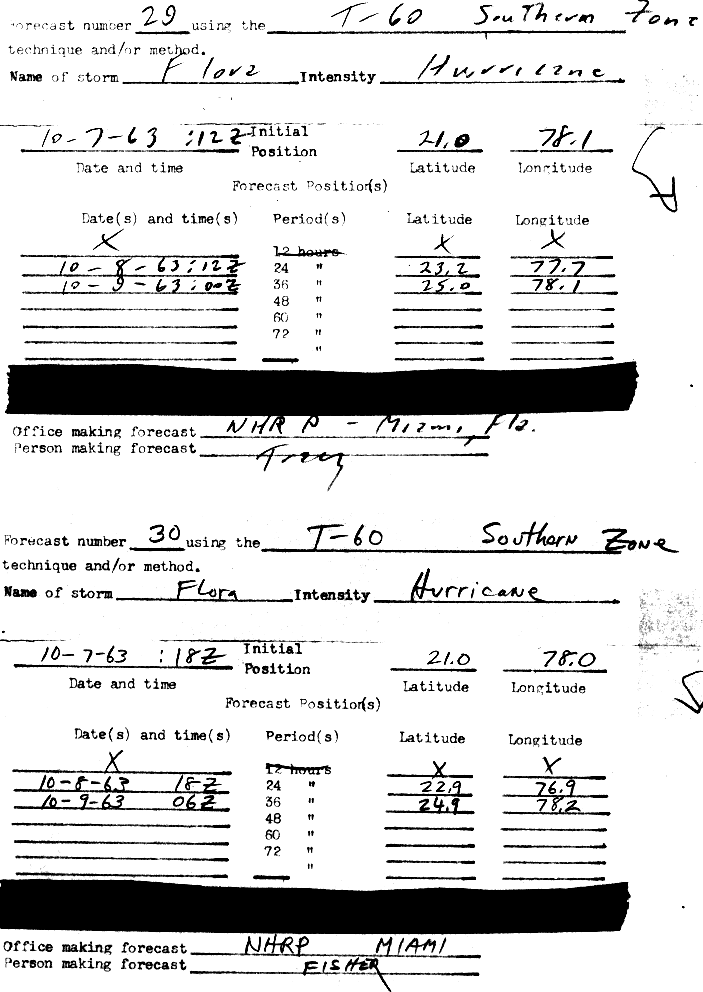 Forecast number 29 using the T-60 Southern Zone
technique and/or method.
Name of storm Flora Intensity Hurricane
10-7-63 :12Z Initial Position 21.0 78.1
Date and time Latitude Longitude
Forecast Position(s)
Date(s) and time(s) Period(s) Latitude Longitude
X 12 hours X X
10-8-63:12Z 24 " 23.2 77.7
10-9-63:00Z 36 " 25.0 78.1
48 "
60 "
72 "
"
Office making forecast NHRP - Miami, Fla.
Person making forecast Tracy
Forecast number 30 using the T-60 Southern Zone
technique and/or method.
Name of storm Flora Intensity Hurricane
10-7-63 :18Z Initial Position 21.0 78.0
Date and time Latitude Longitude
Forecast Position(s)
Date(s) and time(s) Period(s) Latitude Longitude
X 12 hours X X
10-8-63 18Z 24 " 22.9 76.9
10-9-63 06Z 36 " 24.9 78.2
48 "
60 "
72 "
"
Office making forecast NHRP MIAMI
Person making forecast FISHER